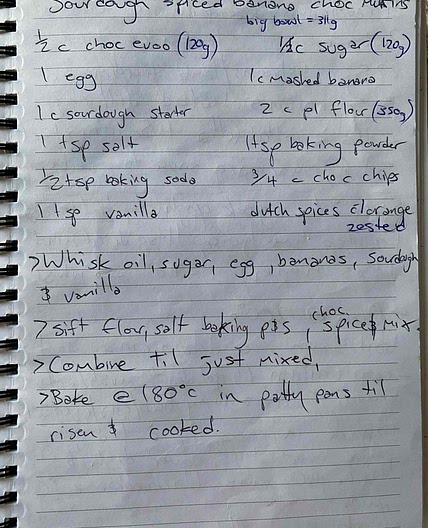 Sourdough spiced banana choc Muffins
big bowl = 311g
1/2 c choc evoo (120g) 1/2c sugar (120g)
1 egg 1c mashed banana
1c sourdough starter 2 c pl flour (350g)
1 tsp salt 1tsp baking powder
1/2 tsp baking soda 3/4 c choc chips
1 tsp vanilla dutch spices & orange
zested
>Whisk oil, sugar, egg, bananas, sourdough
& vanilla
choc.
>Sift flour, salt baking p&s, spices mix.
>Combine til just mixed,
>Bake @ 180°c in patty pans til
risen & cooked.